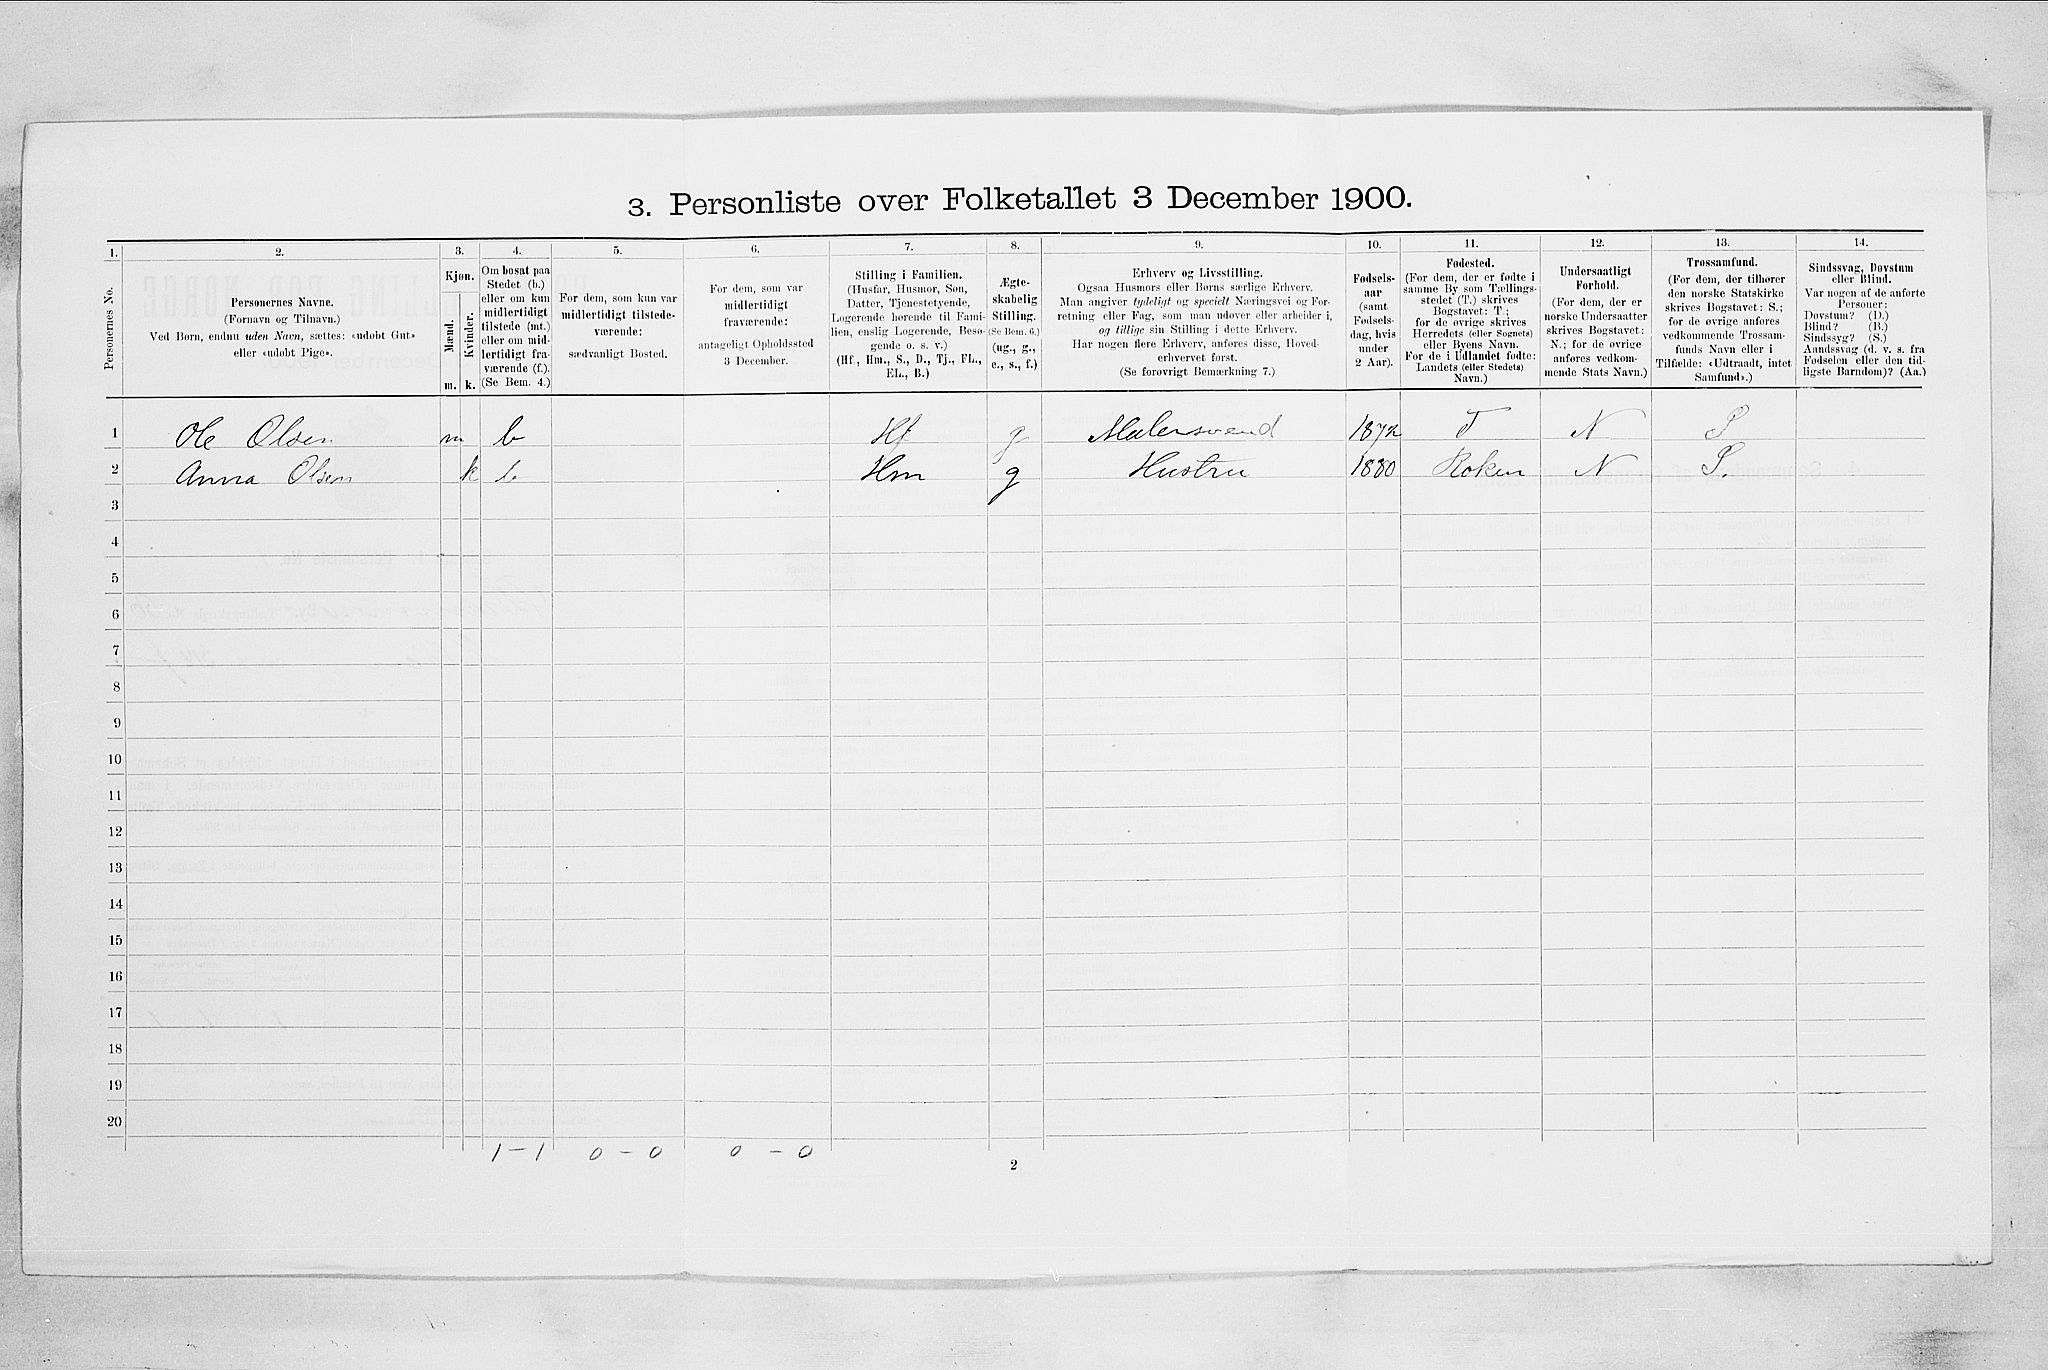 3. Personliste over Folketallet 3 December 1900.
1.
Personernes No.
2.
Personernes Navne.
(Fornavn og Tilnavn.)
Ved Børn, endnu uden Navn, sættes: «udøbt Gut»
eller «udøbt Pige».
3.
Kjøn.
Mænd.
Kvinder.
m. k.
4.
Om bosat paa
Stedet (b.)
eller om kun
midlertidigt
tilstede (mt.)
eller om mid-
lertidigt fra-
værende (f.).
(Se Bem. 4.)
5.
For dem, som kun var
midlertidigt tilstede-
værende:
sædvanligt Bosted.
6.
For dem, som var
midlertidigt
fraværende:
antageligt Opholdssted
3 December.
7.
Stilling i Familien.
(Husfar, Husmor, Søn,
Datter, Tjenestetyende,
Logerende hørende til Fami-
lien, enslig Logerende, Besø-
gende o. s. v.)
(Hf., Hm., S., D., Tj., FL.,
EL., B.)
8.
Ægte-
skabelig
Stilling.
(Se Bem. 6.)
(ug., g.,
e., s., f.)
9.
Erhverv og Livsstilling.
Ogsaa Husmors eller Børns særlige Erhverv.
Man angiver tydeligt og specielt Næringsvei og For-
retning eller Fag, som man udøver eller arbeider i,
og tillige sin Stilling i dette Erhverv.
Har nogen flere Erhverv, anføres disse, Hoved-
erhvervet først.
(Se forøvrigt Bemærkning 7.)
10.
Fødsels-
aar
(samt
Fødsels-
dag, hvis
under
2 Aar).
11.
Fødested.
(For dem, der er fødte i
samme By som Tællings-
stedet (T.) skrives
Bogstavet: T.;
for de øvrige skrives
Herredets (eller Sognets)
eller Byens Navn.
For de i Udlandet fødte:
Landets (eller Stedets)
Navn.)
12.
Undersaatligt
Forhold.
(For dem, der er
norske Undersaatter
skrives Bogstavet:
N.; for de øvrige
anføres vedkom-
mende Stats Navn.)
13.
Trossamfund.
(For dem, der tilhører
den norske Statskirke
skrives Bogstavet: S.;
for de øvrige anføres
vedkommende Trossam-
funds Navn eller i
Tilfælde: «Udtraadt, intet
Samfund».)
14.
Sindssvag, Døvstum
eller Blind.
Var nogen af de anførte
Personer:
Døvstum? (D.)
Blind? (B.)
Sindssyg? (S.)
Aandssvag (d. v. s. fra
Fødselen eller den tid-
ligste Barndom)? (Aa.)
1 Ole Olsen m b Hf g Malersvend 1872 T N S
2 Anna Olsen k b Hm g Hustru 1880 Røken N S.
3
4
5
6
7
8
9
10
11
12
13
14
15
16
17
18
19
20
1 – 1 0 – 0 0 – 0
2